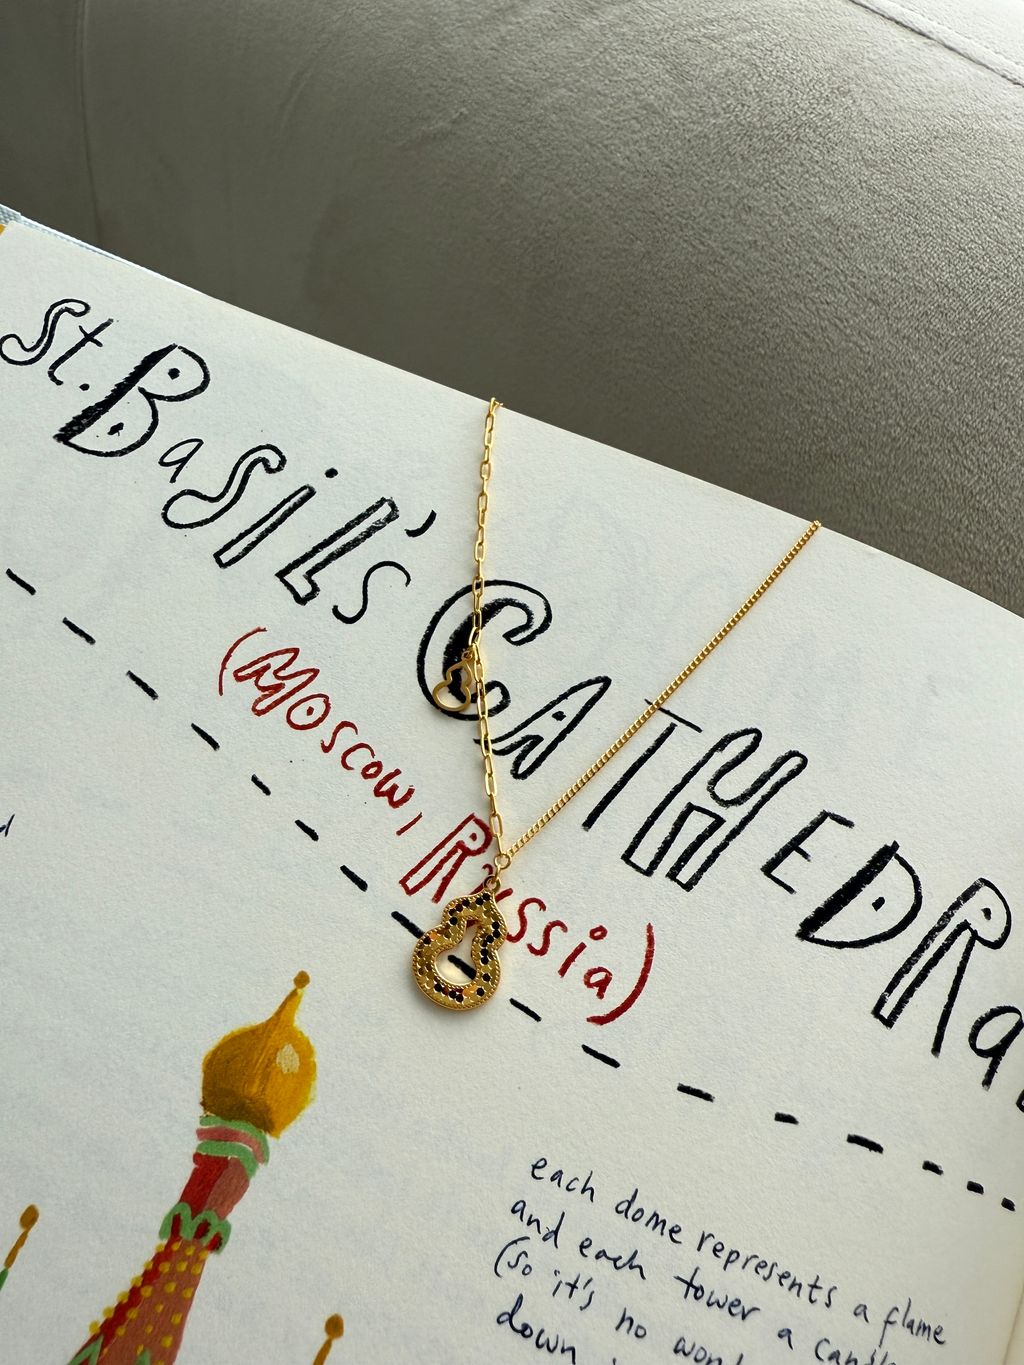 St. Basil's CATHEDRa
(Moscow, Russia)
each dome represents a flame
and each tower a
(so it's no
down